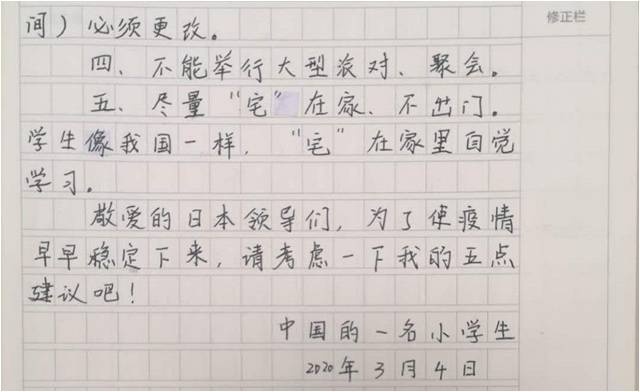 间）必须更改。
修正栏
四、不能举行大型派对、聚会。
五、尽量“宅”在家、不出门。
学生像我国一样，“宅”在家里自觉
学习。
敬爱的日本领导们，为了使疫情
早早稳定下来，请考虑一下我的五点
建议吧！
中国的一名小学生
2020年3月4日